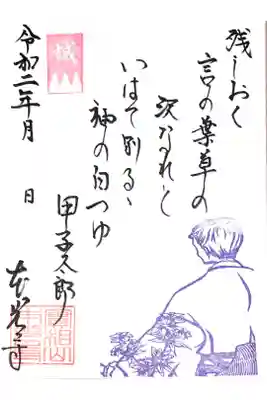 残しおく
言の葉草の
沢なれと
いはて別るゝ
袖の白つゆ
甲子太郎
本光寺
誠
令和二年月 日